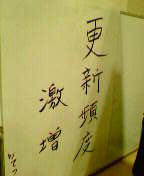 更新頻度
激増